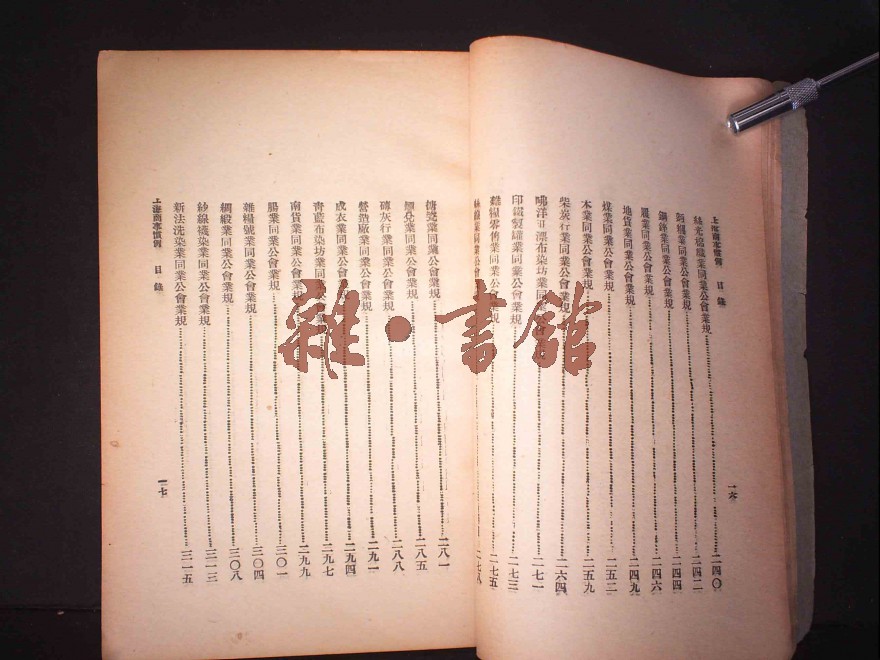 上海商事慣例 目錄
一六
業同業公會業規 二四〇
業同業公會業規 二四二
業同業公會業規 二四四
履業同業公會業規 二四六
地貨業同業公會業規 二四九
煤業同業公會業規 二五二
木業同業公會業規 二五九
柴炭行業同業公會業規 二六四
洋 漂布染坊業同業公會業規 二七一
印鐵製罐業同業公會業規 二七三
雜糧零售業同業公會業規 二七五
業同業公會 二七八
業同業公會業規 二八一
業同業公會業規 二八五
磚灰行業同業公會業規 二八八
營造廠業同業公會業規 二九一
成衣業同業公會業規 二九四
青藍布染坊業同業公會業規 二九七
南貨業同業公會業規 二九九
腸業同業公會業規 三〇一
雜糧號業同業公會業規 三〇四
綢緞業同業公會業規 三〇八
紗線襪染業同業公會業規 三一三
新法洗染業同業公會業規 三一五
上海商事慣例 目錄
一七
雜·書館